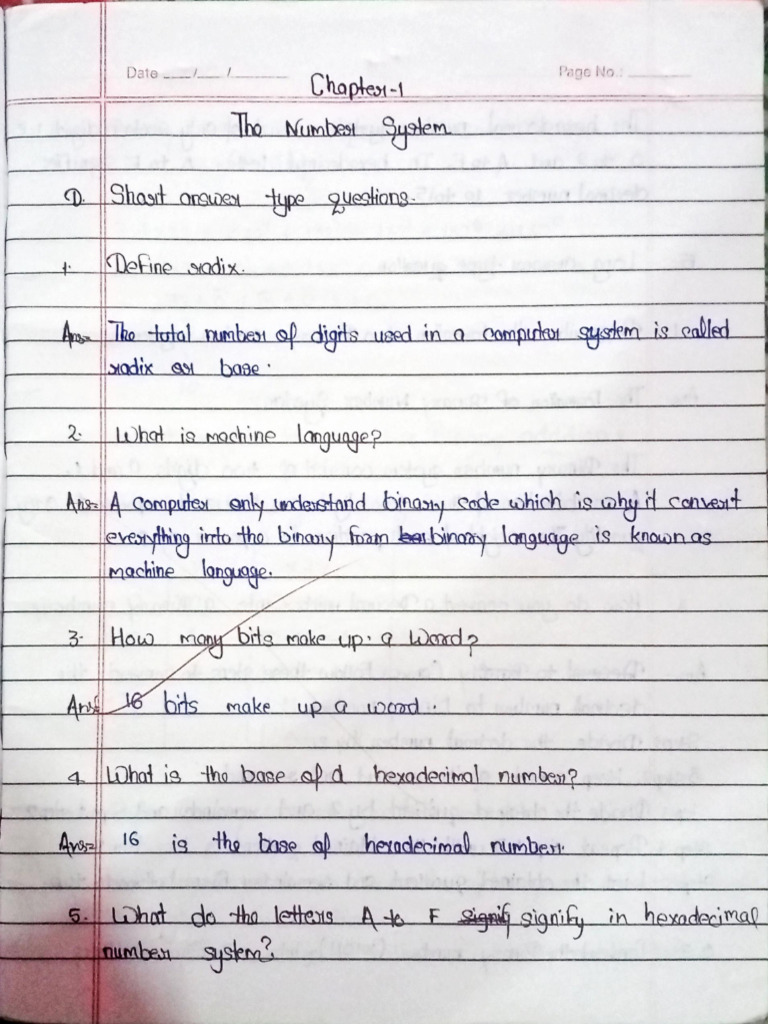 Date __/__/____ Page No.: ____
Chapter-1
The Number System
D. Short answer type questions.
1. Define radix.
Ans= The total number of digits used in a computer system is called
radix or base.
2. What is machine language?
Ans= A computer only understand binary code which is why it convert
everything into the binary form binary language is known as
machine language.
3. How many bits make up a word?
Ans= 16 bits make up a word
4. What is the base of a hexadecimal number?
Ans= 16 is the base of hexadecimal number.
5. What do the letters A to F signify signify in hexadecimal
number system?